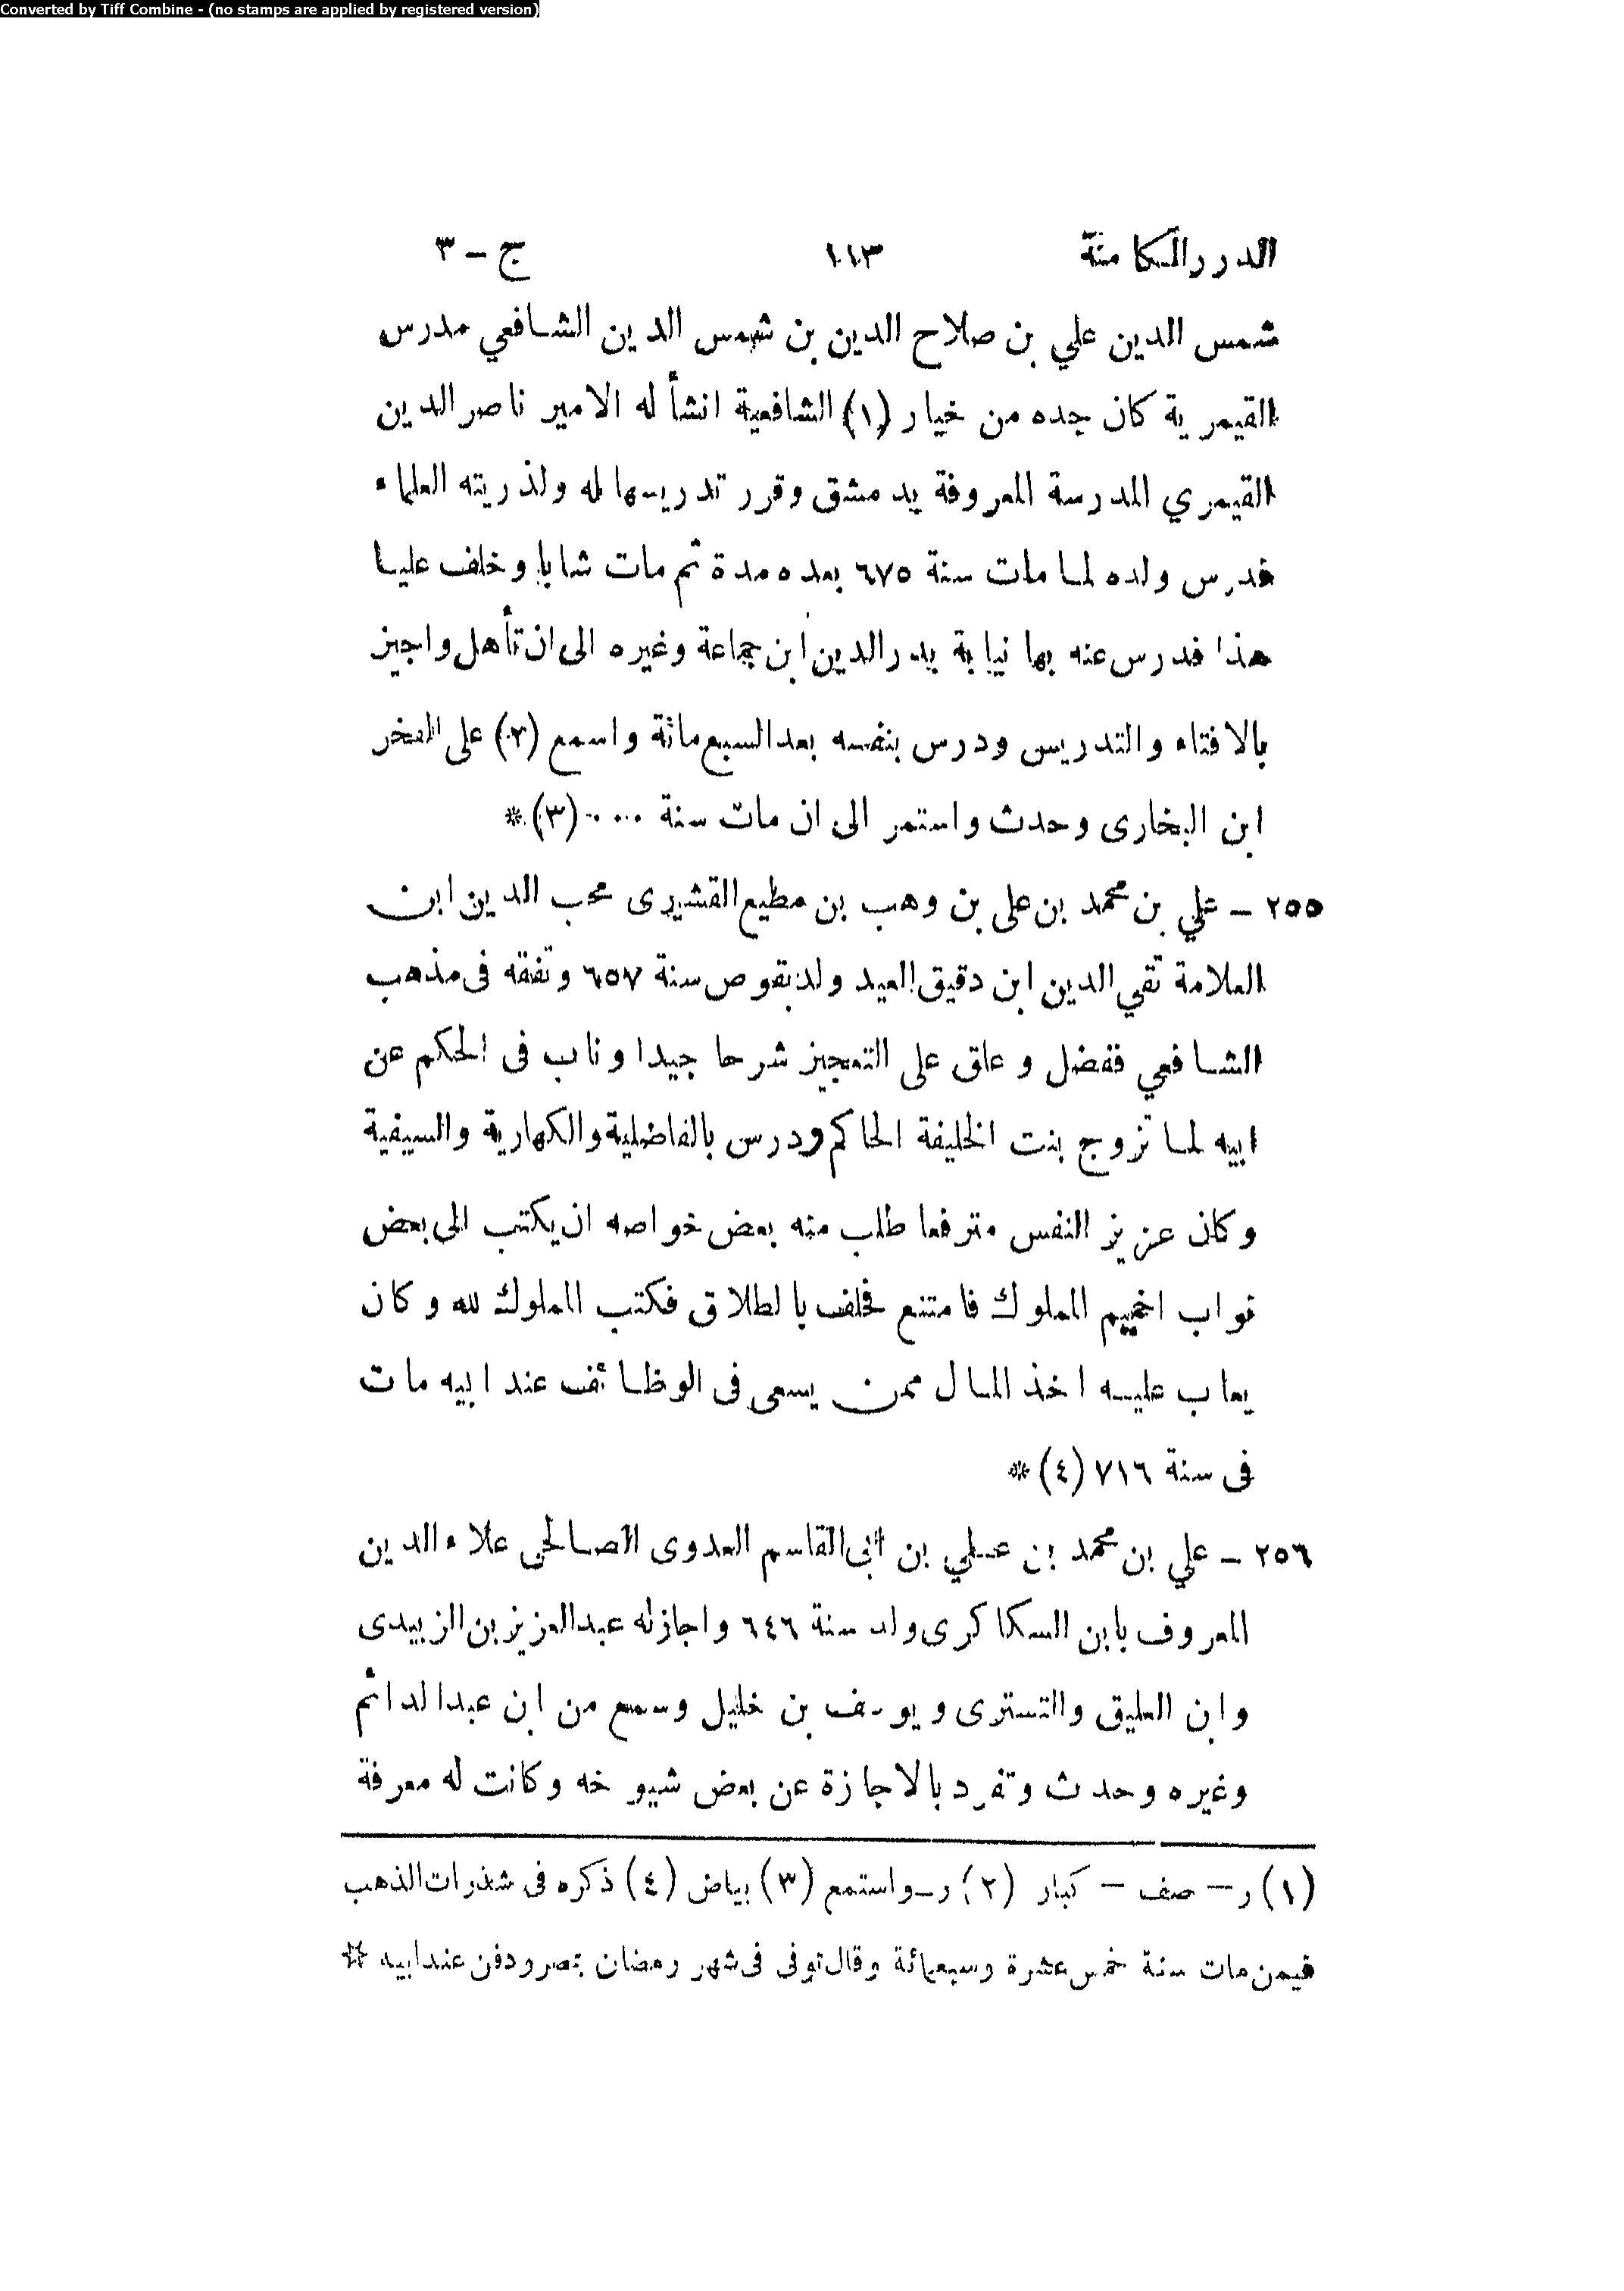 Converted by Tiff Combine - (no stamps are applied by registered version)
الدررالكامنة ١١٣ ج - ٣
شمس الدين علي بن صلاح الدين بن شمس الدين الشافعي مدرس
القيمرية كان جده من خيار (١) الشافعية انشأ له الامير ناصر الدين
القيمري المدرسة المعروفة بدمشق وقرر تدريسها له ولذريته العلماء
فدرس ولده لما مات سنة ٦٧٥ بعده مدة ثم مات شابا وخلف عليا
هذا فدرس عنه بها نيابة بدر الدين ابن جماعة وغيره الى ان تأهل واجيز
بالافتاء والتدريس ودرس بنفسه بعد السبع مائة واسمع (٢) على الفخر
ابن البخارى وحدث واستمر الى ان مات سنة ٠٠٠٠ (٣) *
٢٥٥ - علي بن محمد بن على بن وهب بن مطيع القشيرى محب الدين ابن
العلامة تقي الدين ابن دقيق العيد ولد بقوص سنة ٦٥٧ وتفقه فى مذهب
الشافعي ففضل وعلق على التعجيز شرحا جيدا وناب فى الحكم عن
ابيه لما تزوج بنت الخليفة الحاكم ودرس بالفاضلية والكهارية والسيفية
وكان عزيز النفس مترفعا طلب منه بعض خواصه ان يكتب الى بعض
نواب اخميم المملوك فامتنع فحلف بالطلاق فكتب المملوك لله وكان
يعاب عليه اخذ المال ممن يسعى فى الوظائف عند ابيه مات
فى سنة ٧١٦ (٤) *
٢٥٦ - علي بن محمد بن علي بن ابى القاسم العدوى الصالحى علاء الدين
المعروف بابن السكاكرى ولد سنة ٦٤٦ واجازله عبد العزيز بن الزبيدى
وابن العليق والتسترى ويوسف بن خليل وسمع من ابن عبد الدائم
وغيره وحدث وتفرد بالاجازة عن بعض شيوخه وكانت له معرفة
(١) ر - صف - كبار (٢) ر - واستمع (٣) بياض (٤) ذكره فى شذرات الذهب
فيمن مات سنة خمس عشرة وسبعمائة وقال توفى فى شهر رمضان بمصر ودفن عند ابيه *